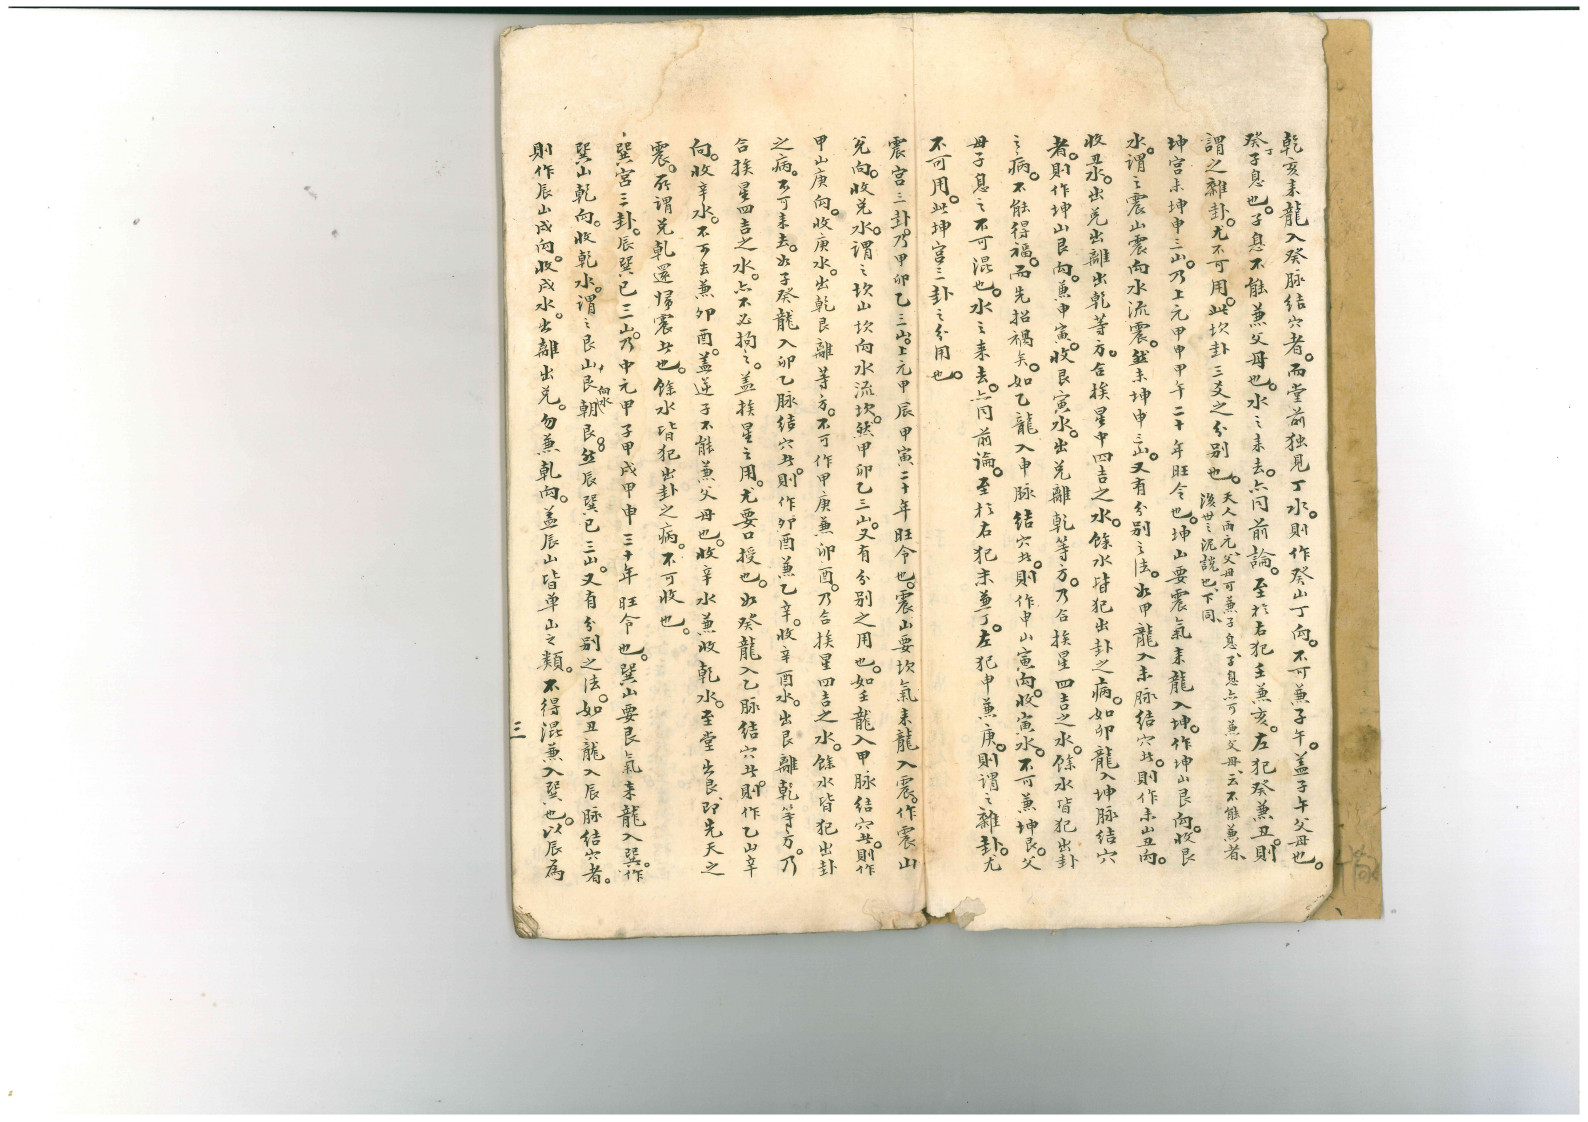 乾亥来龍入癸脉结穴者。而堂前独見丁水。則作癸山丁向。不可兼子午。盖子午父母也。
癸子息也。子息不能兼父母也。水之来去。亦同前論。至於右犯壬兼亥。左犯癸兼丑。則
謂之雜卦。尤不可用。此坎卦三爻之分别也。天人両元、父母可兼子息、子息亦可兼父母、云不能兼者、
後世之泥說也、下同、
坤宫未坤申三山。乃上元甲申甲午二十年旺令也。坤山要震氣来龍入坤。作坤山艮向。收艮
水。謂之震山震向水流震。然未坤申三山。又有分别之法。如甲龍入未脉结穴者。則作未山丑向。
收丑水。出兑出離出乾等方。合挨星中四吉之水。餘水皆犯出卦之病。如卯龍入坤脉结穴
者。則作坤山艮向。兼申寅。收艮寅水。出兑離乾等方。乃合挨星四吉之水。餘水皆犯出卦
之病。不能得福。而先招禍矣。如乙龍入申脉结穴者。則作申山寅向。收寅水。不可兼坤艮。父
母子息之不可混也。水之来去。亦同前論。至於右犯未兼丁。左犯申兼庚。則謂之雜卦。尤
不可用。此坤宫三卦之分用也。
震宫三卦。乃甲卯乙三山。上元甲辰甲寅二十年旺令也。震山要坎氣来龍入震。作震山
兑向。收兑水。謂之坎山坎向水流坎。然甲卯乙三山。又有分别之用也。如壬龍入甲脉结穴者。則作
甲山庚向。收庚水。出乾艮離等方。不可作甲庚兼卯酉。乃合挨星四吉之水。餘水皆犯出卦
之病。不可来去。如子癸龍入卯乙脉结穴者。則作卯酉兼乙辛。收辛酉水。出艮離乾等方。乃
合挨星四吉之水。亦不必拘之。盖挨星之用。尤要口授也。如癸龍入乙脉结穴者。則作乙山辛
向。收辛水。不可去兼卯酉。盖逆子不能兼父母也。收辛水兼收乾水。至堂出艮、即先天之
震。所謂兑乾還歸震者也。餘水皆犯出卦之病。不可收也。
巽宫三卦。辰巽巳三山。乃中元甲子甲戌甲申三十年旺令也。巽山要艮氣来龍入巽。作
巽山乾向。收乾水。謂之艮山艮向水朝艮。然辰巽巳三山。又有分别之法。如丑龍入辰脉结穴者。
則作辰山戌向。收戌水。出離出兑。勿兼乾向。盖辰山皆单山之類。不得混兼入巽也。以辰為
三